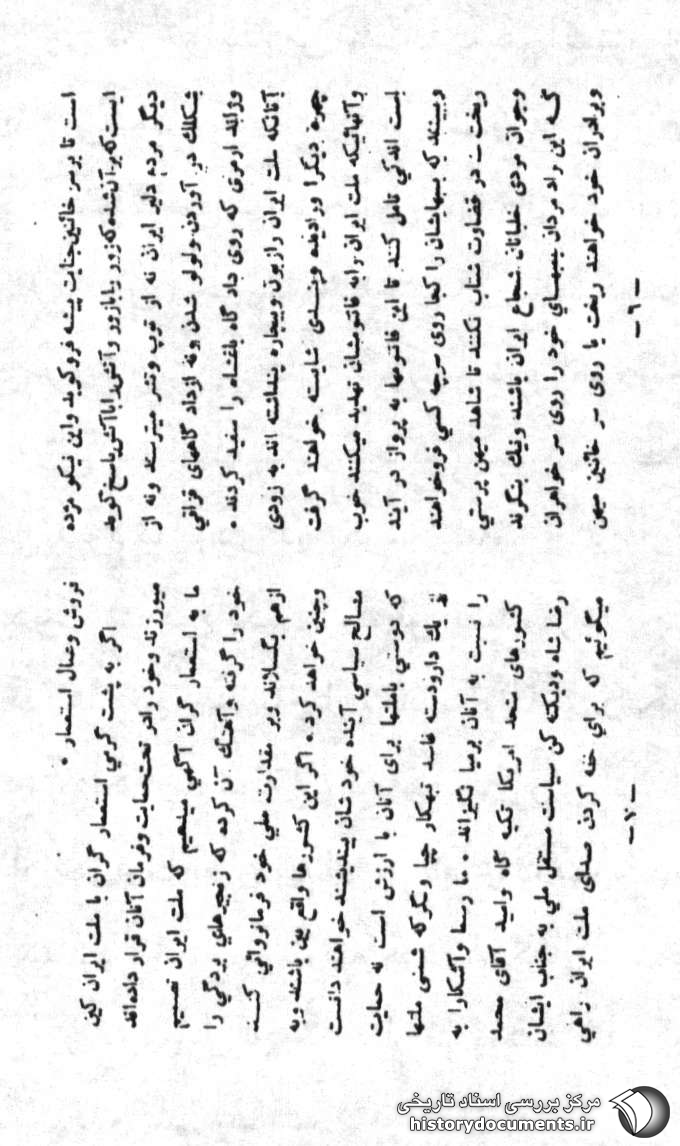 است تا بر سر خائنین جنایت پیشه فرو کوبد و این نیکو مژده
ایست که بر آن شده که زور را با زور و آتش را با آتش پاسخ گوید
دیگر مردم دلیر ایران نه از توپ و تشر میترسند و نه از
شکلک در آوردن و لولو شدن و نه از داد گاههای قزاقی
که روی داد گاه را سفید کردند .
آنانکه ملت ایران را زبون و بیچاره پنداشته اند به زودی
چهره دیگر را و پندی شایسته خواهند گرفت
و آنهائیکه ملت ایران را به فانتومشان تهدید میکنند خوب
است اندکی تامل کنند تا این فانتومها به پرواز در آیند
و ببینند که بمبهایشان را کجا روی سر چه کسی فرو خواهند
ریخت - در قضاوت شتاب نکنند تا شاهد میهن پرستی
و جوان مردی خلبانان شجاع ایران باشند و نیک بنگرند
که این راد مردان بمبهای خود را روی سر خواهران
و برادران خود خواهند ریخت یا روی سر خائنین میهن
-٦-
فروش و عمال استعمار .
اگر به پشت گرمی استعمار گران با ملت ایران کین
میورزند و خود را در تحت حمایت و فرمان آنان قرار داده اند
ما به استعمار گران آگهی میدهیم که ملت ایران تصمیم
خود را گرفته و آهنگ آن کرده که زنجیر های بردگی را
از هم بگسلاند و بر مقدارت ملی خود فرمانروائی کند
و چنین خواهد کرد . اگر این کشورها واقع بین باشند و به
مصالح سیاسی آینده خودشان بیندیشند خواهند دانست
که دوستی با ملتها برای آنان با ارزش است نه حمایت
از یک دارودسته فاسد تبهکار چپاولگر که دشمنی ملتها
را نسبت به آنان برمیانگیزاند . ما رسما و آشکارا به
کشورهای متحد امریکا تکیه گاه و امید آقای محمد
رضا شاه ودیکته کن سیاست مستقل ملی به جناب ایشان
میگوئیم که برای خفه کردن صدای ملت ایران راهی
-٧-
مرکز بررسی اسناد تاریخی
historydocuments.ir